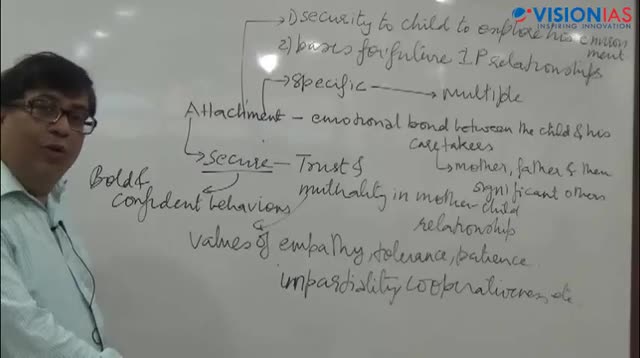 VISIONIAS
INSPIRING INNOVATION
1) security to child to explore his environment
2) bases for future I.P relationships
Specific → multiple
Attachment – emotional bond between the child & his
caretakers
mother, father & then
significant others
Secure – Trust &
muthality in mother-child
relationship
Bold &
Confident behaviors
Values of empathy, tolerance, patience
impartiality, cooperativeness, etc